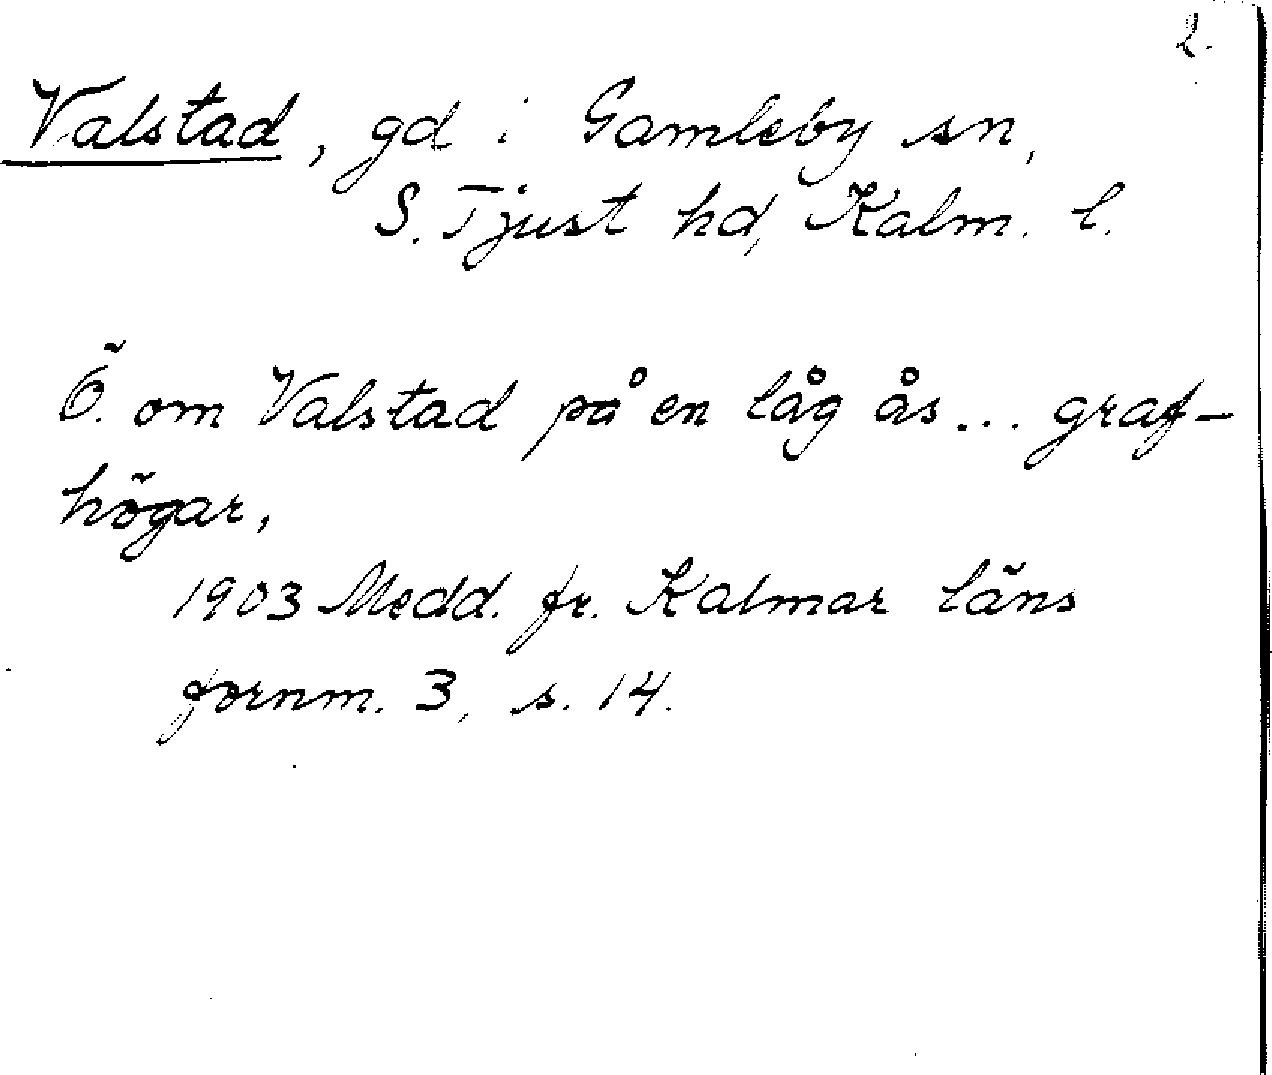 2.
Valstad, gd i Gamleby sn,
S. Tjust hd, Kalm. l.
Ö. om Valstad på en låg ås... graf-
högar,
1903 Medd. fr. Kalmar läns
fornm. 3, s. 14.